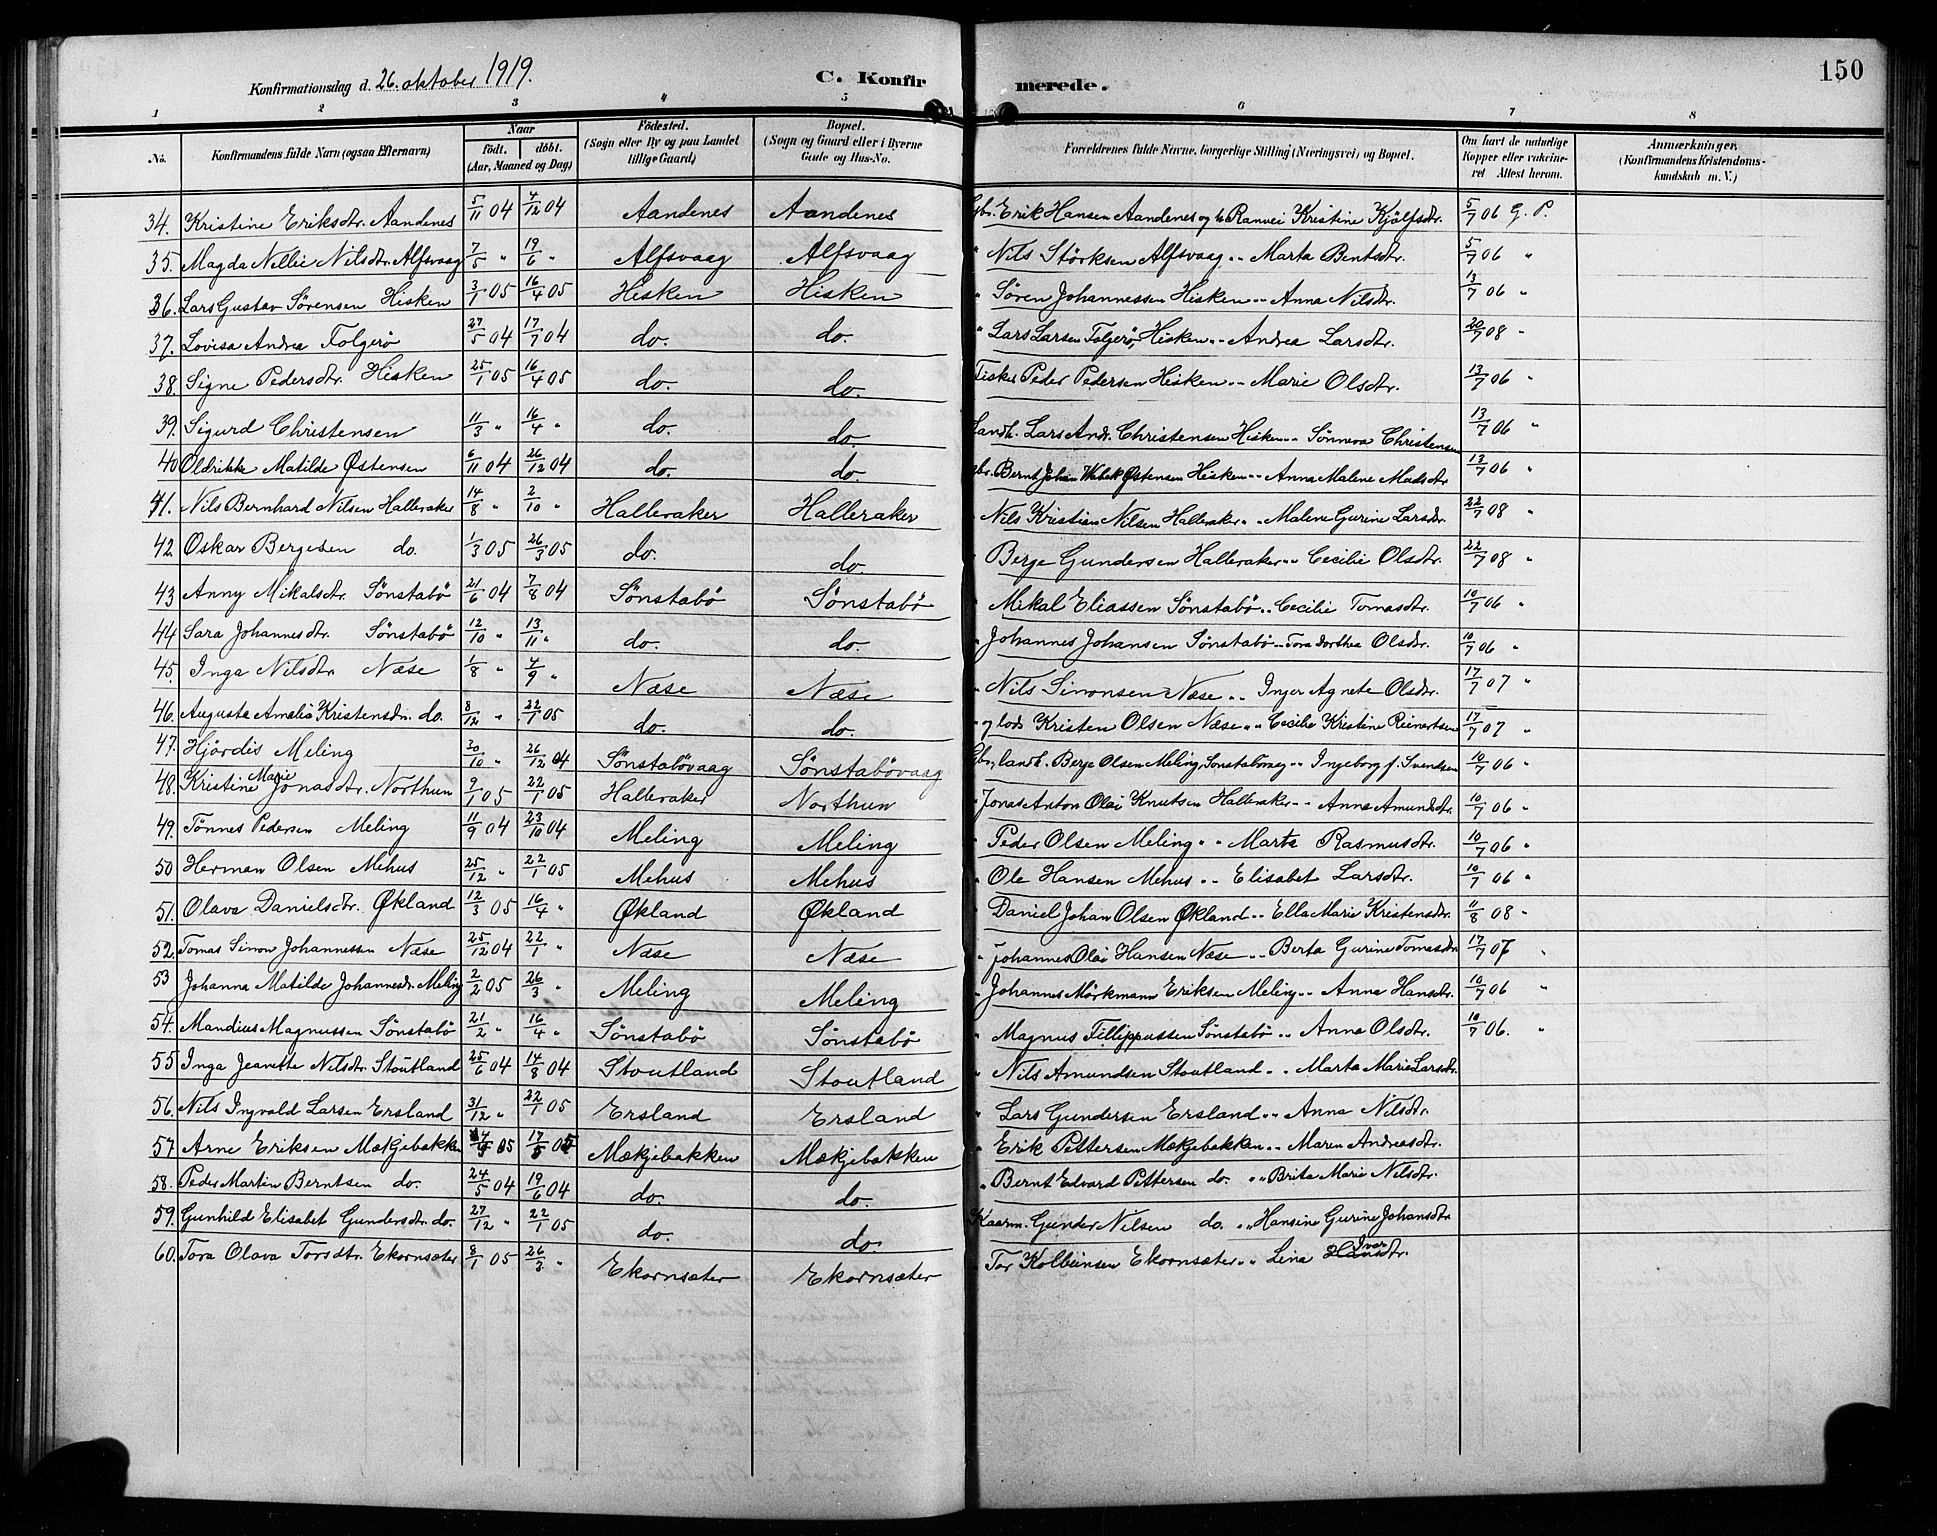 150
Konfirmationsdag d. 26. oktober 1919. C. Konfirmerede.
1 2 3 4 5 6 7 8
No. Konfirmandens fulde Navn (ogsaa Efternavn) Naar födt. döbt. (Aar, Maaned og Dag) Födested. (Sogn eller By og paa Landet tillige Gaard) Bopæl. (Sogn og Gaard eller i Byerne Gade og Hus-No. Forældrenes fulde Navne, borgerlige Stilling (Næringsvei) og Bopæl. Om havt de naturlige Kopper eller vakcineret Attest herom. Anmærkninger. (Konfirmandens Kristendomskundskab m. V.)
34. Kristine Eriksdtr. Aandenes 5/11 04 4/12 04 Aandenes Aandenes Gbr. Erik Hansen Aandenes og h. Ranvei Kristine Kjölfsdtr. 5/7 06 G. P.
35. Magda Nellie Nilsdtr. Alfsvaag 7/5 " 19/6 " Alfsvaag Alfsvaag " Nils Störksen Alfsvaag " " Marta Bentsdtr. 5/7 06 "
36. Lars Gustav Sörensen Hisken 3/1 05 16/4 05 Hisken Hisken " Sören Johannessen Hisken " " Anna Nilsdtr. 13/7 06 "
37. Lovisa Andrea Folgerö 27/5 04 17/7 04 do. do. " Lars Larsen Folgerö, Hisken " " Andrea Larsdtr. 20/7 08 "
38. Signe Pedersdtr. Hisken 25/1 05 16/4 05 do. do. Fisker Peder Pedersen Hisken " " Marie Olsdtr. 13/7 06 "
39. Sigurd Christensen 11/3 " 16/4 " do. do. Landh. Lars Andr. Christensen Hisken " " Sönneva Christensen 13/7 06 "
40 Oldrikke Matilde Østensen 6/11 04 26/12 04 do. do. Gbr. Bernt Johan Østensen Hisken " " Anna Malene Madsdtr 13/7 06 "
41. Nils Bernhard Nilsen Halleraker 14/8 " 2/10 " Halleraker Halleraker " Nils Kristian Nilsen Halleraker " " Malene Gurine Larsdtr. 22/7 08 "
42. Oskar Bergesen do. 1/3 05 26/3 05 do. do. " Berge Gundersen Halleraker " " Cecilie Olsdtr. 22/7 08 "
43 Anny Mikalsdtr. Sönstabö 21/6 04 7/8 04 Sönstabö Sönstabö " Mikal Eliassen Sönstabö " " Cecilie Tomasdtr. 10/7 06 "
44 Sara Johannesdtr. Sönstabö 12/10 " 13/11 " do. do. " Johannes Johansen Sönstabö " " Tora Dorthea Olsdtr. 10/7 06 "
45. Inga Nilsdtr. Næse 1/8 " 4/9 " Næse Næse " Nils Simonsen Næse " " Inger Agnete Olsdtr. 17/7 07 "
46. Augusta Amalia Kristensdtr. do. 8/12 " 22/1 05 do. do. " og lods Kristen Olsen Næse " " Cecilie Kristine Reinertsen 17/7 07 "
47. Hjördis Meling 30/10 " 26/12 04 Sönstabövaag Sönstabövaag Gbr., landh. Berge Olsen Meling, Sönstabövaag " " Ingeborg f. Svendsen 10/7 06 "
48. Kristine Marie Jonasdtr. Northun 9/1 05 22/1 05 Halleraker Northun " Jonas Anton Olai Knutsen Halleraker " " Anna Amundsdtr. 10/7 06 "
49. Tönnes Pedersen Meling 11/9 04 23/10 04 Meling Meling " Peder Olsen Meling " " Marta Rasmusdtr. 10/7 06 "
50 Herman Olsen Mehus 25/12 " 22/1 05 Mehus Mehus " Ole Hansen Mehus " " Elisabet Larsdtr. 10/7 06 "
51. Olava Danielsdtr. Økland 12/3 05 16/4 " Økland Økland " Daniel Johan Olsen Økland " " Ella Marie Kristensdtr. 11/8 08 "
52. Tomas Simon Johannessen Næse 25/12 04 22/1 " Næse Næse " Johannes Olai Hansen Næse " " Berta Gurine Tomasdtr. 17/7 07 "
53 Johanna Matilde Johannesdtr. Meling 2/2 05 26/3 " Meling Meling " Johannes Mörkmann Eriksen Meling " " Anna Hansdtr. 10/7 06 "
54. Mandius Magnussen Sönstabö 21/2 " 16/4 " Sönstabö Sönstabö " Magnus Fillippussen Sönstabö " " Anna Olsdtr. 10/7 06. "
55 Inga Jeanette Nilsdtr. Stoutland 25/6 04 14/8 04 Stoutland Stoutland " Nils Amundsen Stoutland " " Marta Marie Larsdtr.
56. Nils Ingvald Larsen Ersland 31/12 " 22/1 05 Ersland Ersland " Lars Gundersen Ersland " " Anna Nilsdtr.
57. Arne Eriksen Mækjebakken 05 17/5 05 Mækjebakken Mækjebakken " Erik Pettersen Mækjebakken " " Maren Andreasdtr.
58. Peder Martin Berntsen do. 24/5 04 19/6 04 do. do. " Bernt Edvard Pettersen do. " " Brita Marie Nilsdtr.
59. Gunhild Elisabet Gundersdtr. do. 27/12 " 22/1 05 do. do. Kaarm. Gunder Nilsen do. " " Hansine Gurine Johansdtr.
60. Tora Olava Torsdtr. Ekornsæter 8/1 05 26/3 " Ekornsæter Ekornsæter " Tor Kolbeinsen Ekornsæter " " Lina Ivarsdtr.